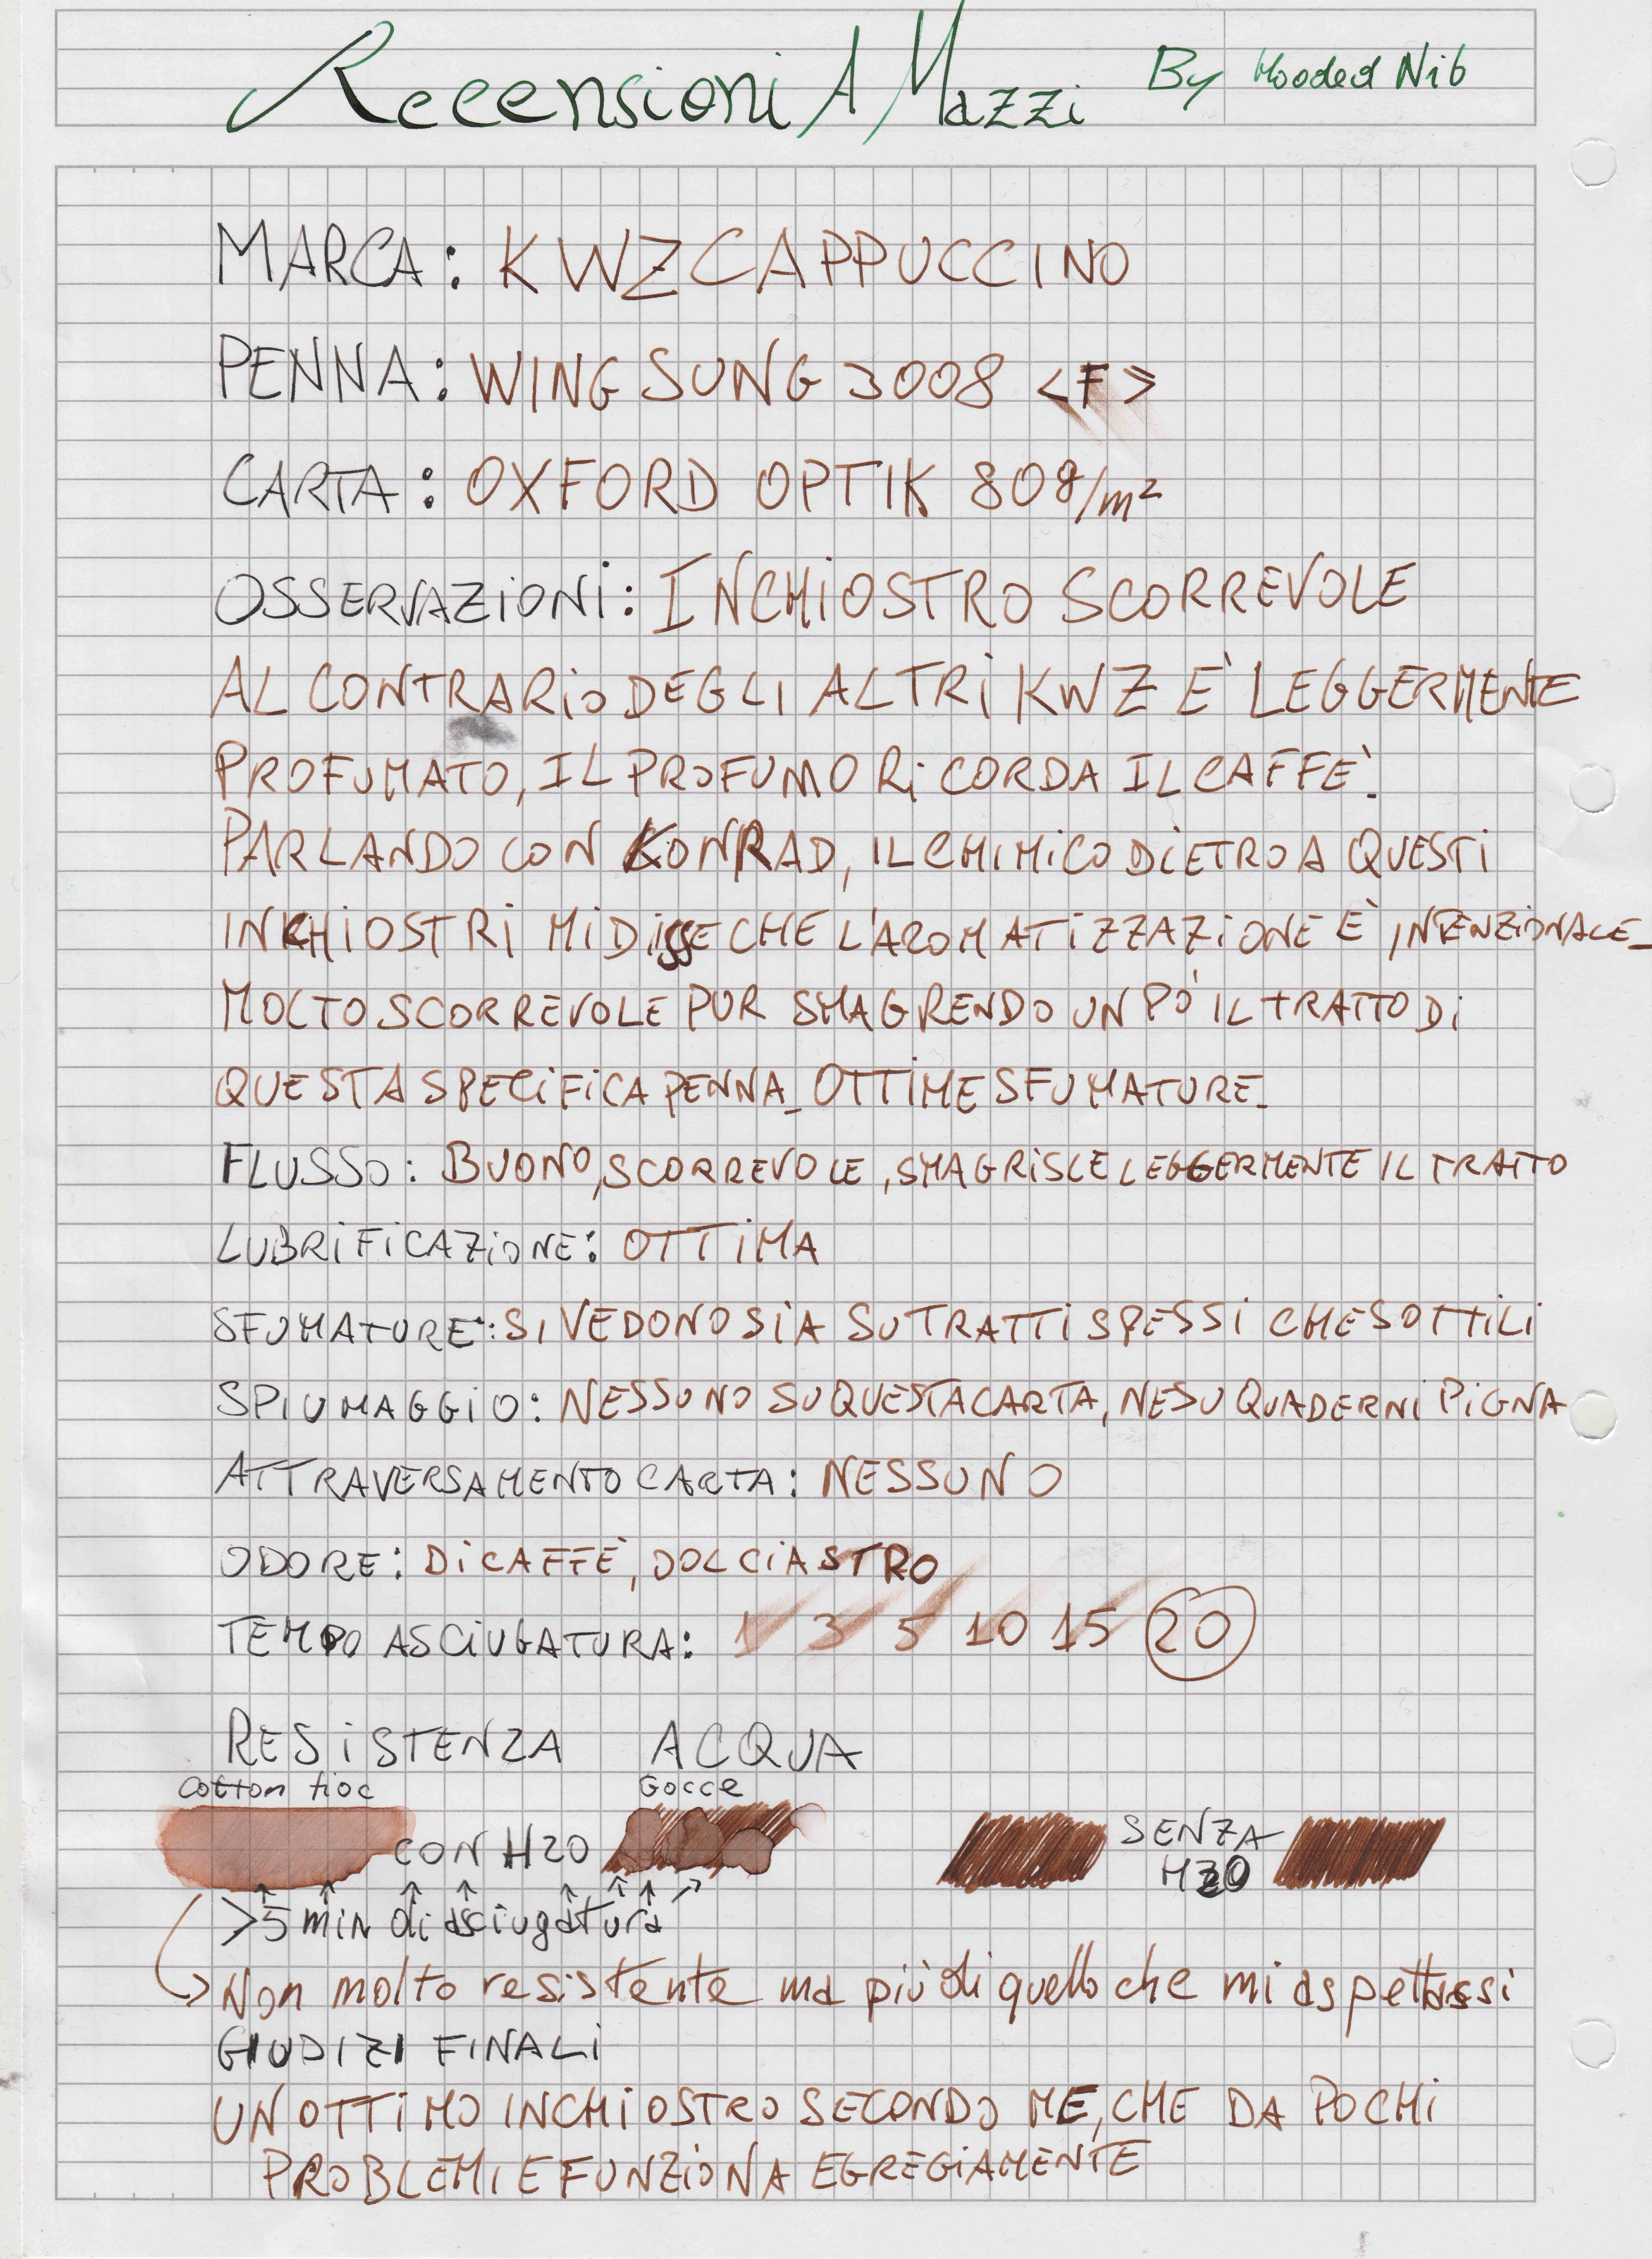 Recensioni A Mazzi By Hooded Nib
MARCA: KWZ CAPPUCCINO
PENNA: WING SUNG 3008 <F>
CARTA: OXFORD OPTIK 80g/m²
OSSERVAZIONI: INCHIOSTRO SCORREVOLE
AL CONTRARIO DEGLI ALTRI KWZ E' LEGGERMENTE
PROFUMATO, IL PROFUMO RICORDA IL CAFFÈ.
PARLANDO CON KONRAD, IL CHIMICO DIETRO A QUESTI
INCHIOSTRI MI DISSE CHE L'AROMATIZZAZIONE È INTENZIONALE_
MOLTO SCORREVOLE PUR SMAGRENDO UN PO' IL TRATTO DI
QUESTA SPECIFICA PENNA_ OTTIME SFUMATURE_
FLUSSO: BUONO, SCORREVOLE, SMAGRISCE LEGGERMENTE IL TRATTO
LUBRIFICAZIONE: OTTIMA
SFUMATURE: SI VEDONO SIA SU TRATTI SPESSI CHE SOTTILI
SPIUMAGGIO: NESSUNO SU QUESTA CARTA, NE SU QUADERNI PIGNA
ATTRAVERSAMENTO CARTA: NESSUNO
ODORE: DI CAFFÈ, DOLCIASTRO
TEMPO ASCIUGATURA: 1 3 5 10 15 20
RESISTENZA ACQUA
Cotton fioc Gocce
CON H2O SENZA
H2O
>5 min di asciugatura
Non molto resistente ma più di quello che mi aspettassi
GIUDIZI FINALI
UN OTTIMO INCHIOSTRO SECONDO ME, CHE DA POCHI
PROBLEMI E FUNZIONA EGREGIAMENTE